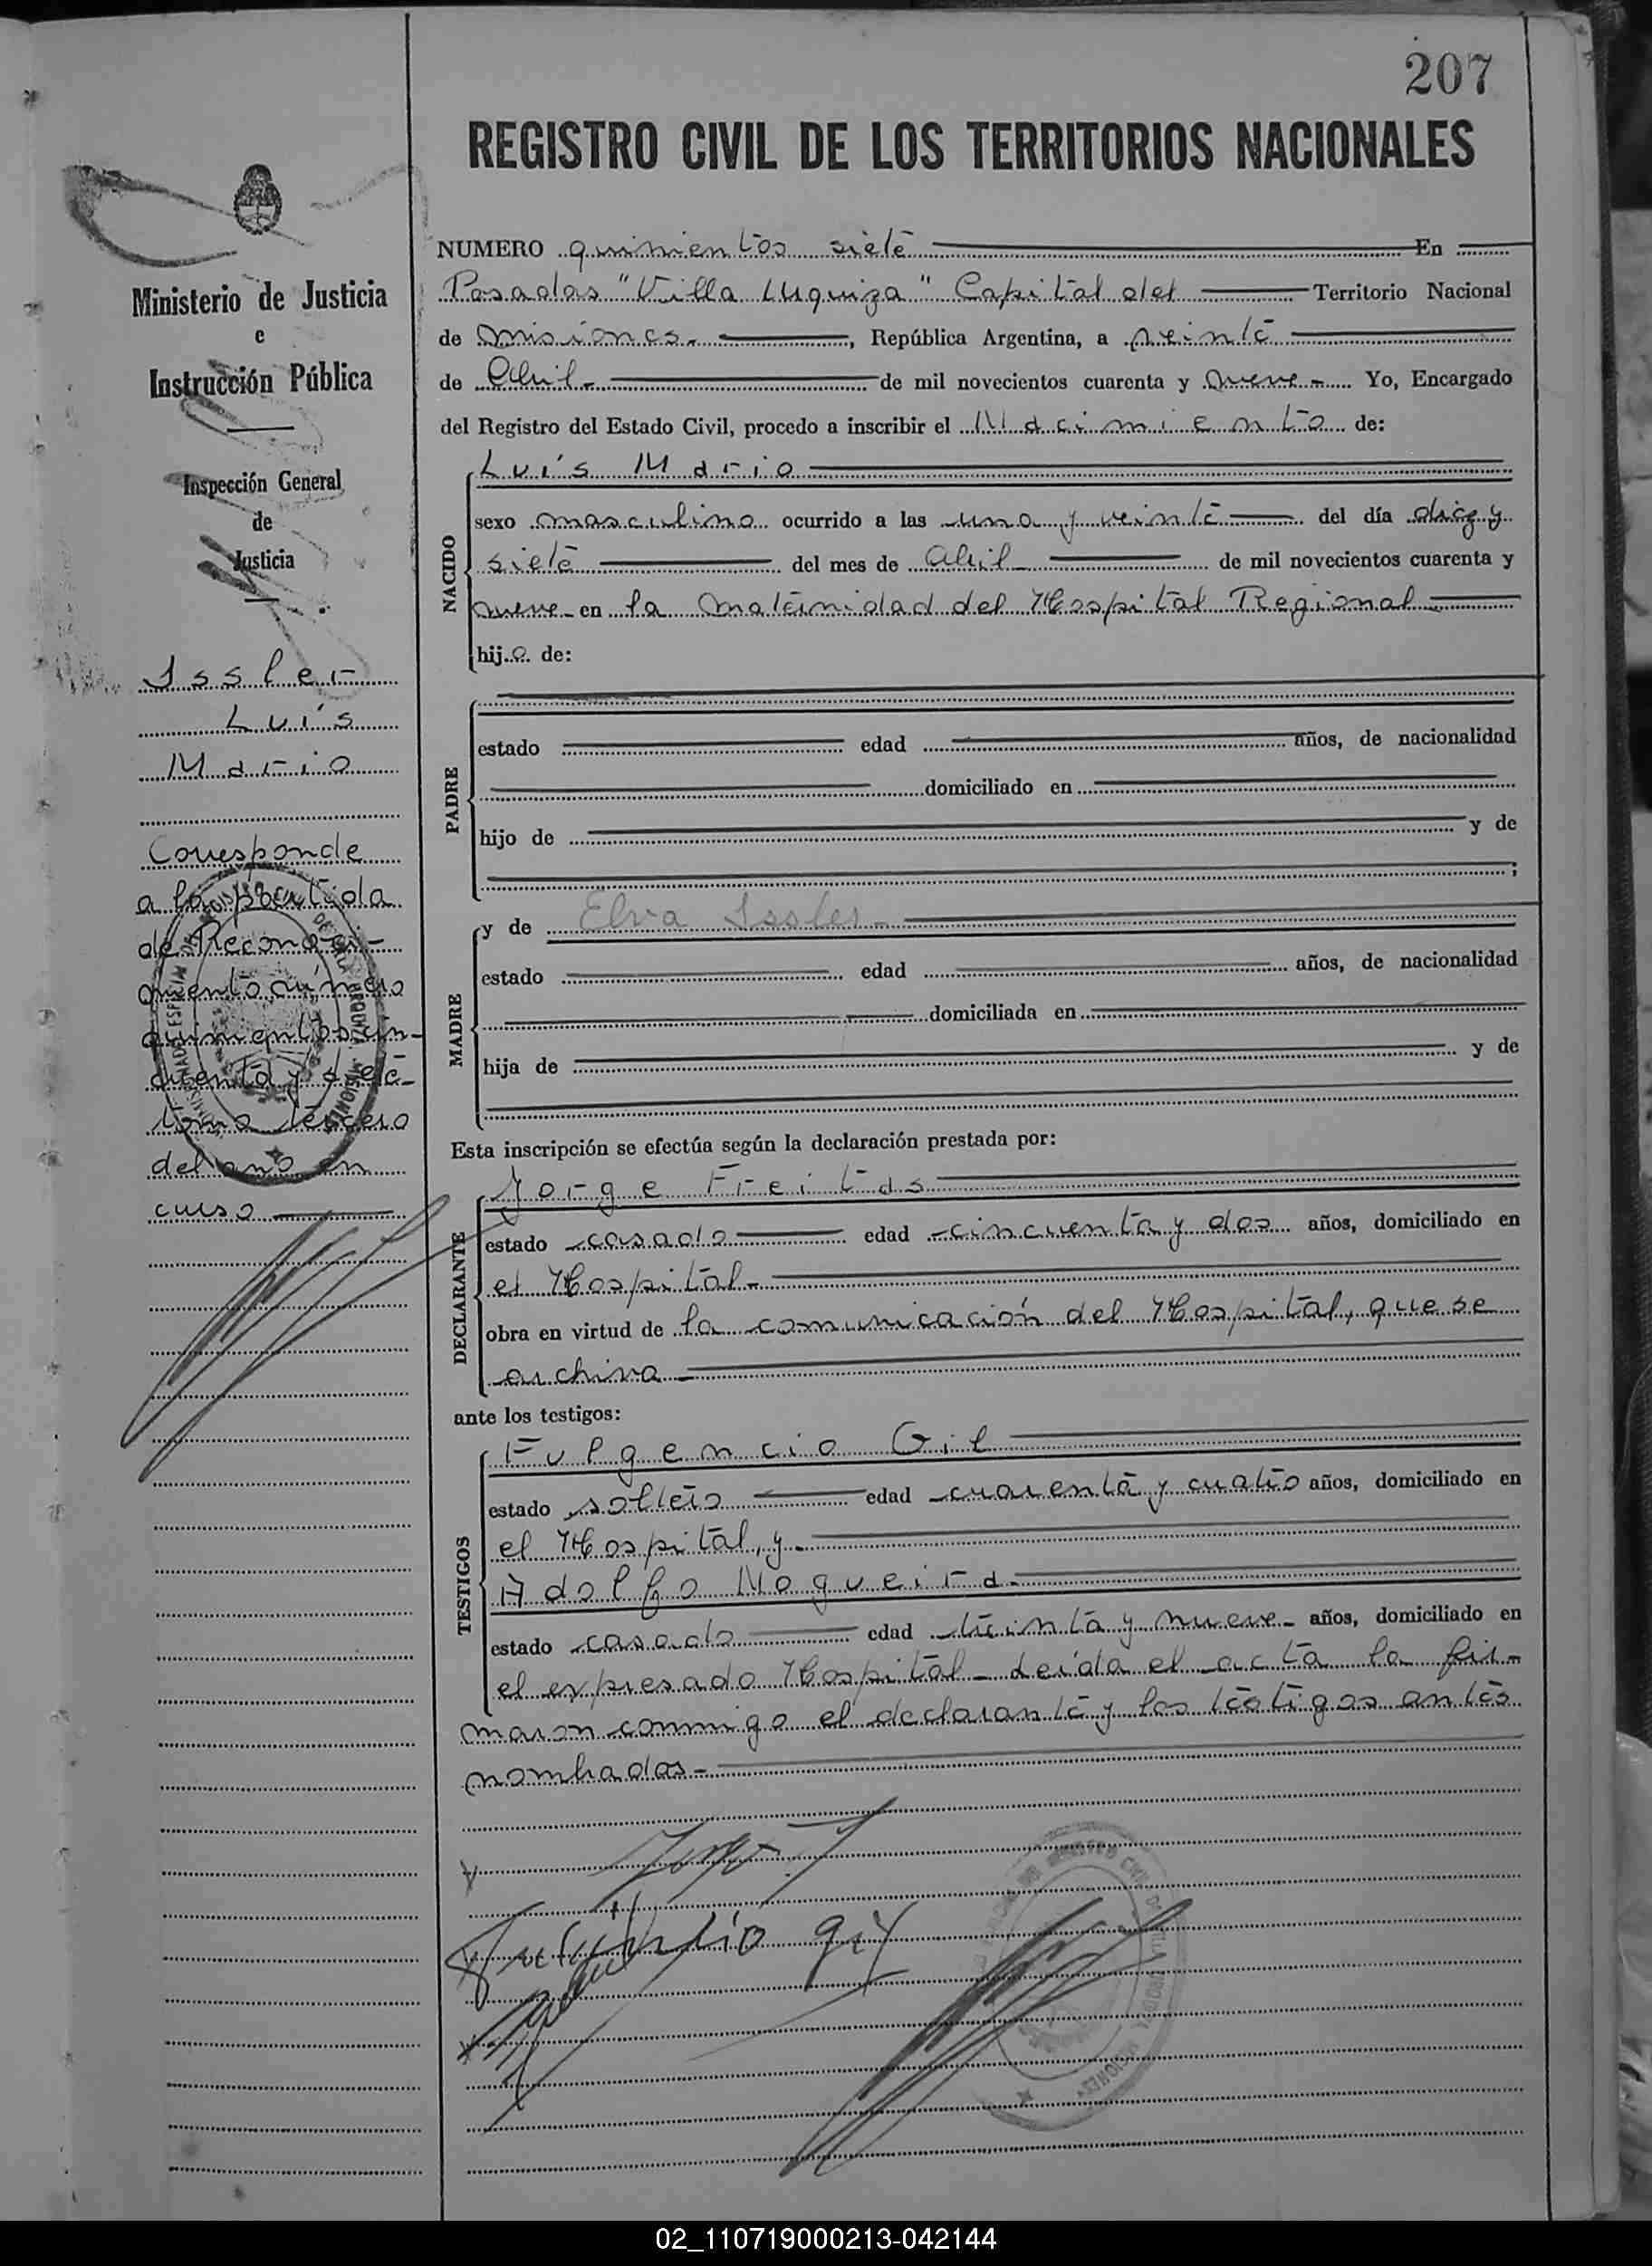 207
REGISTRO CIVIL DE LOS TERRITORIOS NACIONALES
Ministerio de Justicia
e
Instrucción Pública
Inspección General
de
Justicia
Issler
Luís
Mario
Corresponde
a la partida
de Reconoci-
miento número
quinientos cin-
cuenta y siete-
tomo tercero
del año en
curso
NUMERO quinientos siete En
Posadas "Villa Urquiza" Capital del Territorio Nacional
de Misiones.- , República Argentina, a veinte
de Abril- de mil novecientos cuarenta y nueve- Yo, Encargado
del Registro del Estado Civil, procedo a inscribir el Nacimiento de:
NACIDO
Luís Mario
sexo masculino ocurrido a las una y veinte del día diez y
siete del mes de Abril- de mil novecientos cuarenta y
nueve- en la Maternidad del Hospital Regional
hijo de:
PADRE
estado edad años, de nacionalidad
domiciliado en
hijo de y de
;
MADRE
y de Elva Issler-
estado edad años, de nacionalidad
domiciliada en
hija de y de
Esta inscripción se efectúa según la declaración prestada por:
DECLARANTE
Jorge Freitas
estado casado edad cincuenta y dos años, domiciliado en
el Hospital-
obra en virtud de la comunicación del Hospital, que se
archiva-
ante los testigos:
TESTIGOS
Fulgencio Gil
estado soltero edad cuarenta y cuatro años, domiciliado en
el Hospital, y-
Adolfo Nogueira-
estado casado edad treinta y nueve- años, domiciliado en
el expresado Hospital- Leída el acta la fir-
maron conmigo el declarante y los testigos antes
nombrados-
02_110719000213-042144